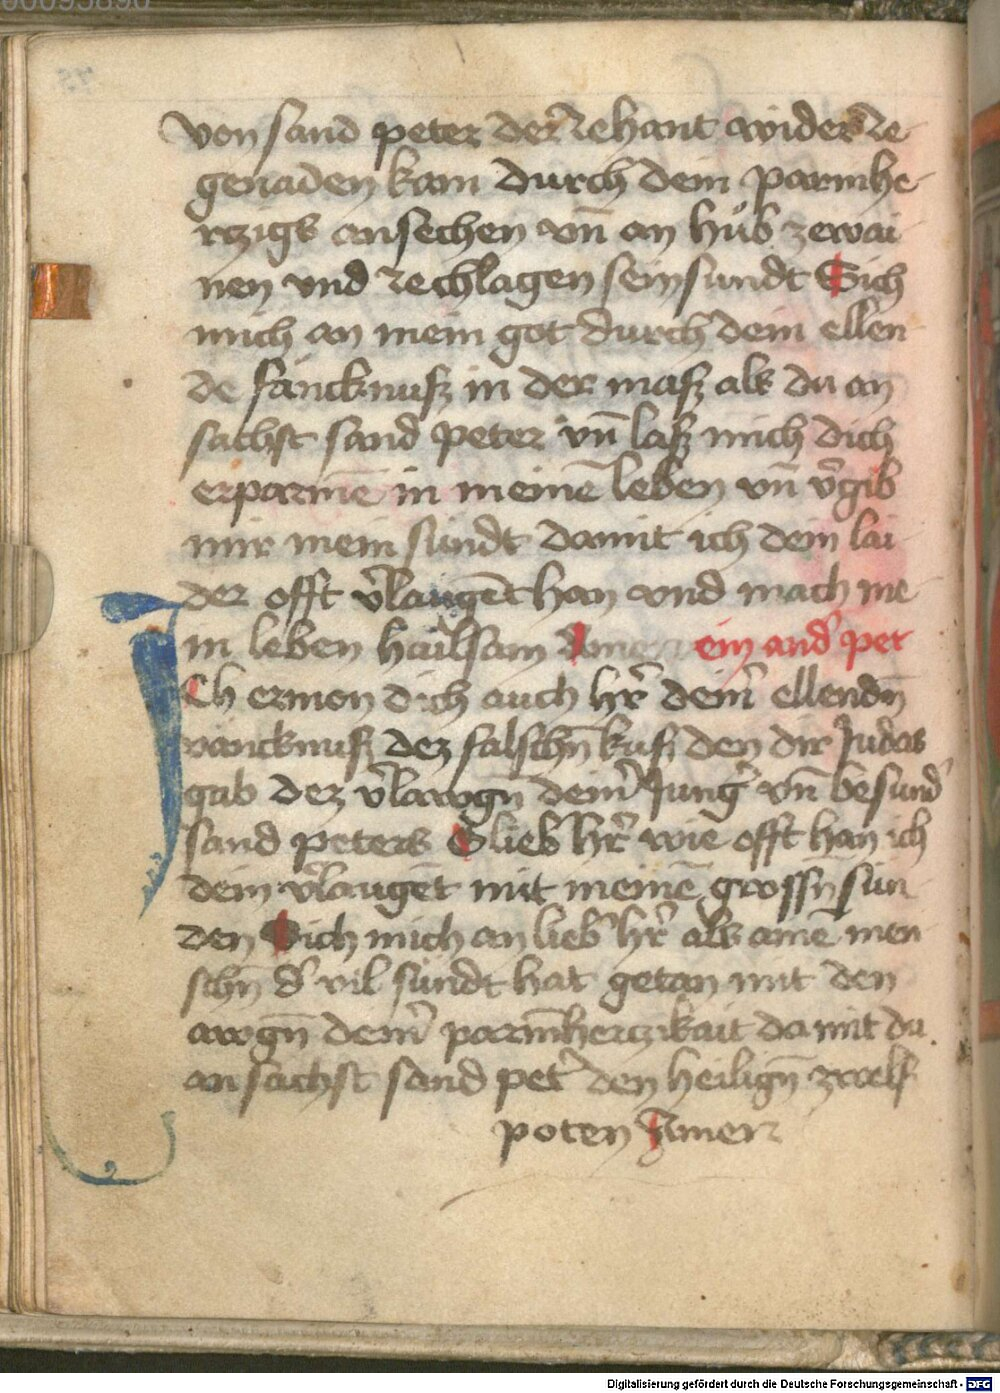 von sand peter der zehant wider ze
genaden kam durch dein parmhe
rczigs ansechen vn̄ an hůb zewai
nen vnd zechlagen sein sundt Sich
mich an mein got durch dein ellen
de fäncknuß in der maß als du an
sachst sand peter vn̄ laß mich dich
erparmē in meinē leben vn̄ v̄gib
mir mein sündt damit ich dein lai
der offt v̄laugēt han vnd mach me
in leben hailsam Amen ein and̄ pet
Ich ermon dich auch hr̄ deīr ellendn̄
vancknuß dez falschn̄ kuß den dir Judas
gab dez v̄lawgn̄ deīr Junḡ vn̄ besund̄
sand peters O lieb̄ hr̄ wie offt han ich
dein v̄laugēt mit meinē grossn̄ sün
den Sich mich an lieb̄ hr̄ als ainē men
schn̄ d̄ vil sündt hat getan mit den
awgn̄ deīr parm̄herczikait da mit du
an sachst sand pet̄ den heilign̄ zwelf
poten Amen
Digitalisierung gefördert durch die Deutsche Forschungsgemeinschaft - DFG